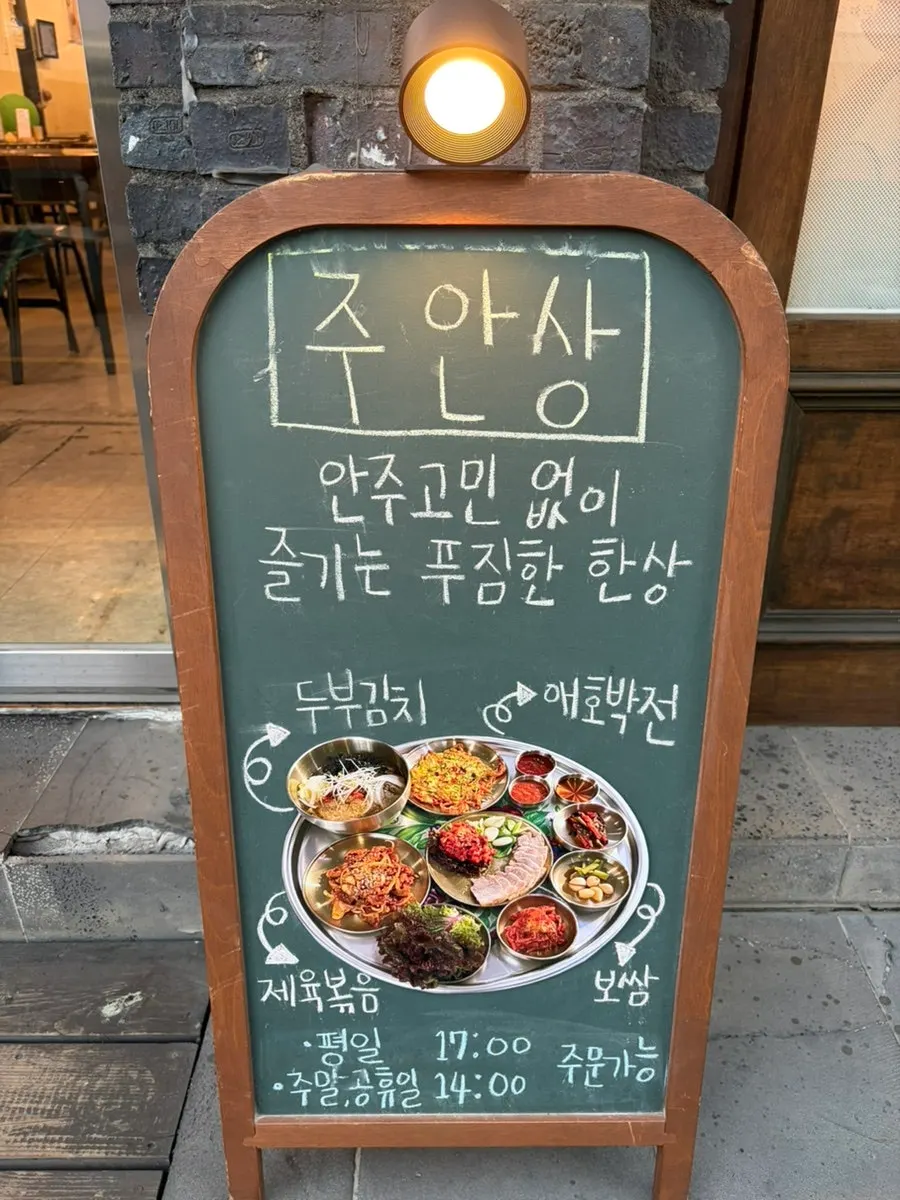 주안상
안주고민 없이
즐기는 푸짐한 한상
두부김치 애호박전
제육볶음 보쌈
·평일 17:00 주문가능
·주말,공휴일 14:00